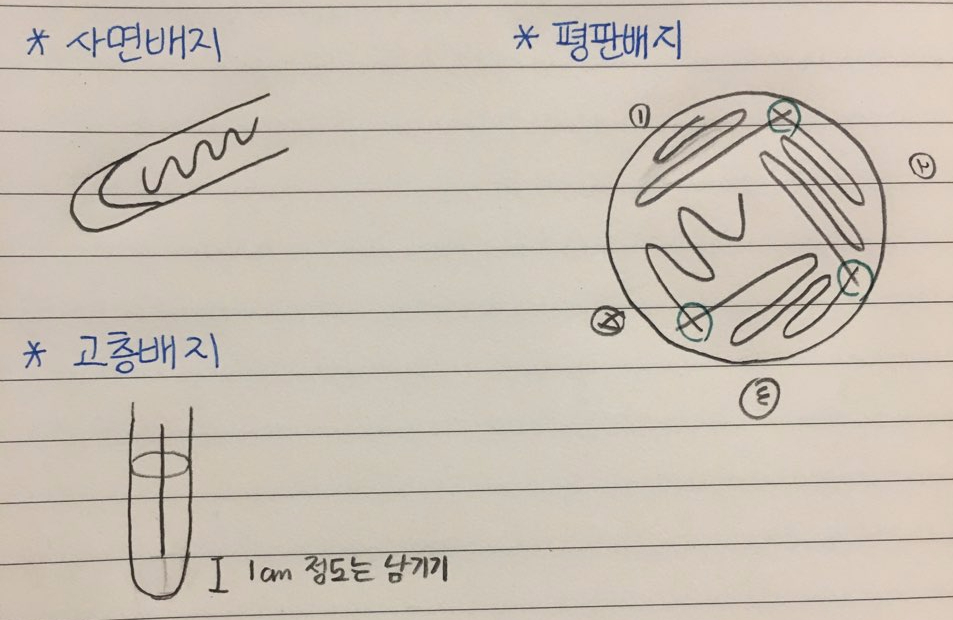 * 사면배지
* 평판배지
①
②
③
④
* 고층배지
1cm 정도는 남기기